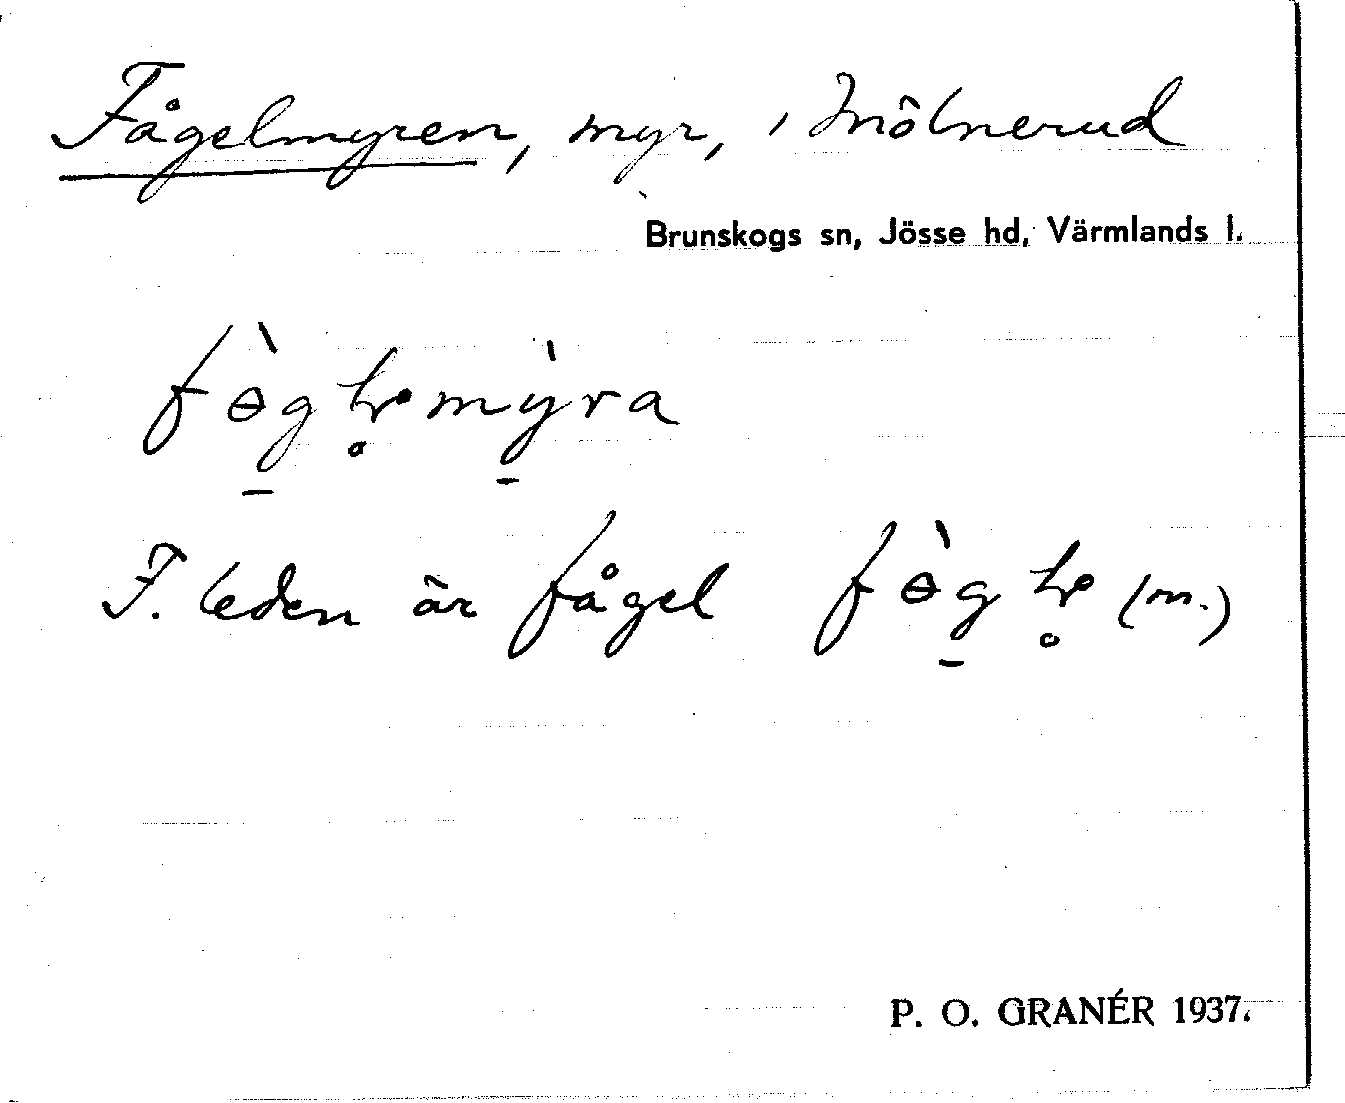 Fågelmyren, myr, i Mölnerud
Brunskogs sn, Jösse hd, Värmlands l.
fɵ̀gl̥mỳra
F. leden är fågel fɵ̀gl̥ (m.)
P. O. GRANÉR 1937.